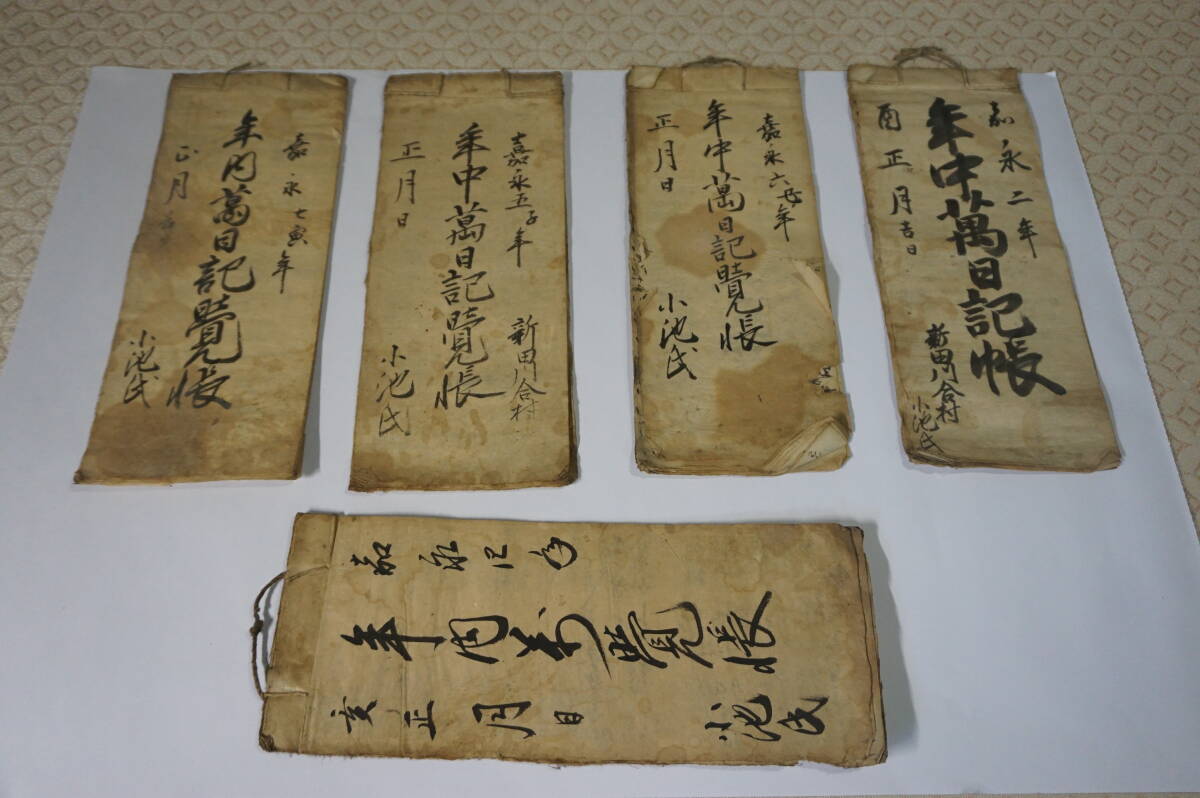 嘉永七寅年
年内萬日記覺帳
正月
小池氏
嘉永五子年
新田川合村
年中萬日記覺帳
正月日
小池氏
嘉永六丑年
年中萬日記覺帳
正月日
小池氏
嘉永二年
年中萬日記帳
酉正月吉日
新田川合村
小池氏
嘉永四年
年内万覺帳
亥正月日
小池氏